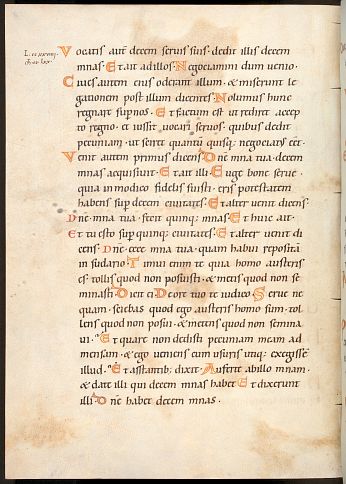 Vocatis aut decem servis suis. dedit illis decem
mnas. Et ait ad illos. Negociamini dum venio.
Cives autem eius oderant illum. & miserunt le
gationem post illum dicentes. Nolumus hunc
regnare sup nos. Et factum est ut rediret accep
to regno. et iussit vocari servos. quibus dedit
pecuniam. ut sciret quantu quisq; negociat' e&.
Venit autem primus dicens. Dne mna tua. decem
mnas acquisivit. Et ait illi. Euge bone serve.
quia in modico fidelis fuisti. eris potestatem
habens sup decem civitates. Et alter venit dicens.
Dne. mna tua. fecit quinq; mnas. Et huic ait.
Et tu esto sup quinq; civitates. Et alter venit di
cens. Dne. ecce mna tua. quam habui reposita
in sudario. Timui enim te quia homo austeris
es. tollis quod non posuisti. & metis quod non se
minasti. Dicit ei. De ore tuo te iudico. Serve ne
quam. sciebas quod ego austeris homo sum. tol
lens quod non posui. & metens quod non semina
vi. Et quare non dedisti pecuniam meam ad
mensam. & ego veniens cum usuris utiq; exegisse
illud. Et astantib; dixit. Auferte ab illo mnam.
& date illi qui decem mnas habet. Et dixerunt
illi. Dne habet decem mnas.